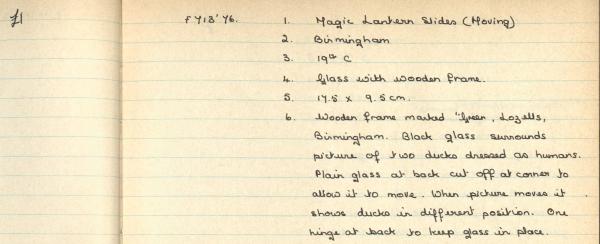 £1
F713'76. 1. Magic Lantern Slides (Moving)
2. Birmingham
3. 19th C
4. Glass with wooden frame.
5. 17.5 x 9.5 cm.
6. Wooden frame marked "Green, Lozells,
Birmingham. Black glass surrounds
picture of two ducks dressed as humans.
Plain glass at back cut off at corner to
allow it to move. When picture moves it
shows ducks in different position. One
hinge at back to keep glass in place.